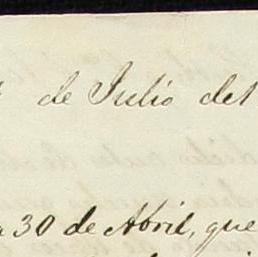 de Julio del
a 30 de Abril, que